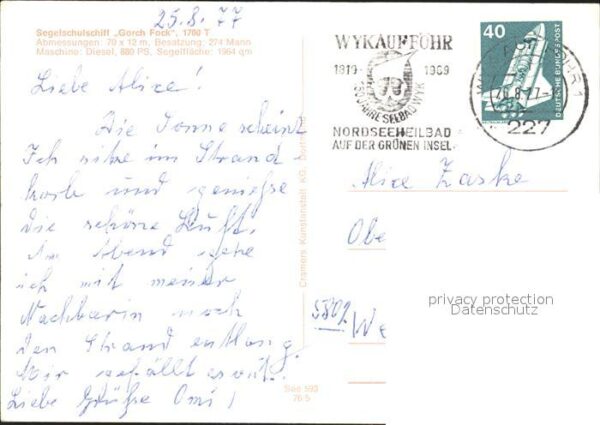 25.8.77
Segelschulschiff „Gorch Fock", 1760 T
Abmessungen: 70 x 12 m, Besatzung: 274 Mann
Maschine: Diesel, 880 PS, Segelfläche: 1964 qm
Liebe Alice!
Die Sonne scheint
Ich sitze im Strand-
korb und genieße
die schöne Luft.
Am Abend gehe
ich mit meiner
Nachbarin noch
den Strand entlang.
Mir gefällt es gut.
Liebe Grüße Omi!
See 593
76/5
Cramers Kunstanstalt KG, Dortmund
WYK AUF FÖHR
1819 1969
150 JAHRE SEEBAD WYK
NORDSEEHEILBAD
AUF DER GRÜNEN INSEL
40
DEUTSCHE BUNDESPOST
26.8.77
227
Alice Zaske
Obe
5802 We
privacy protection
Datenschutz